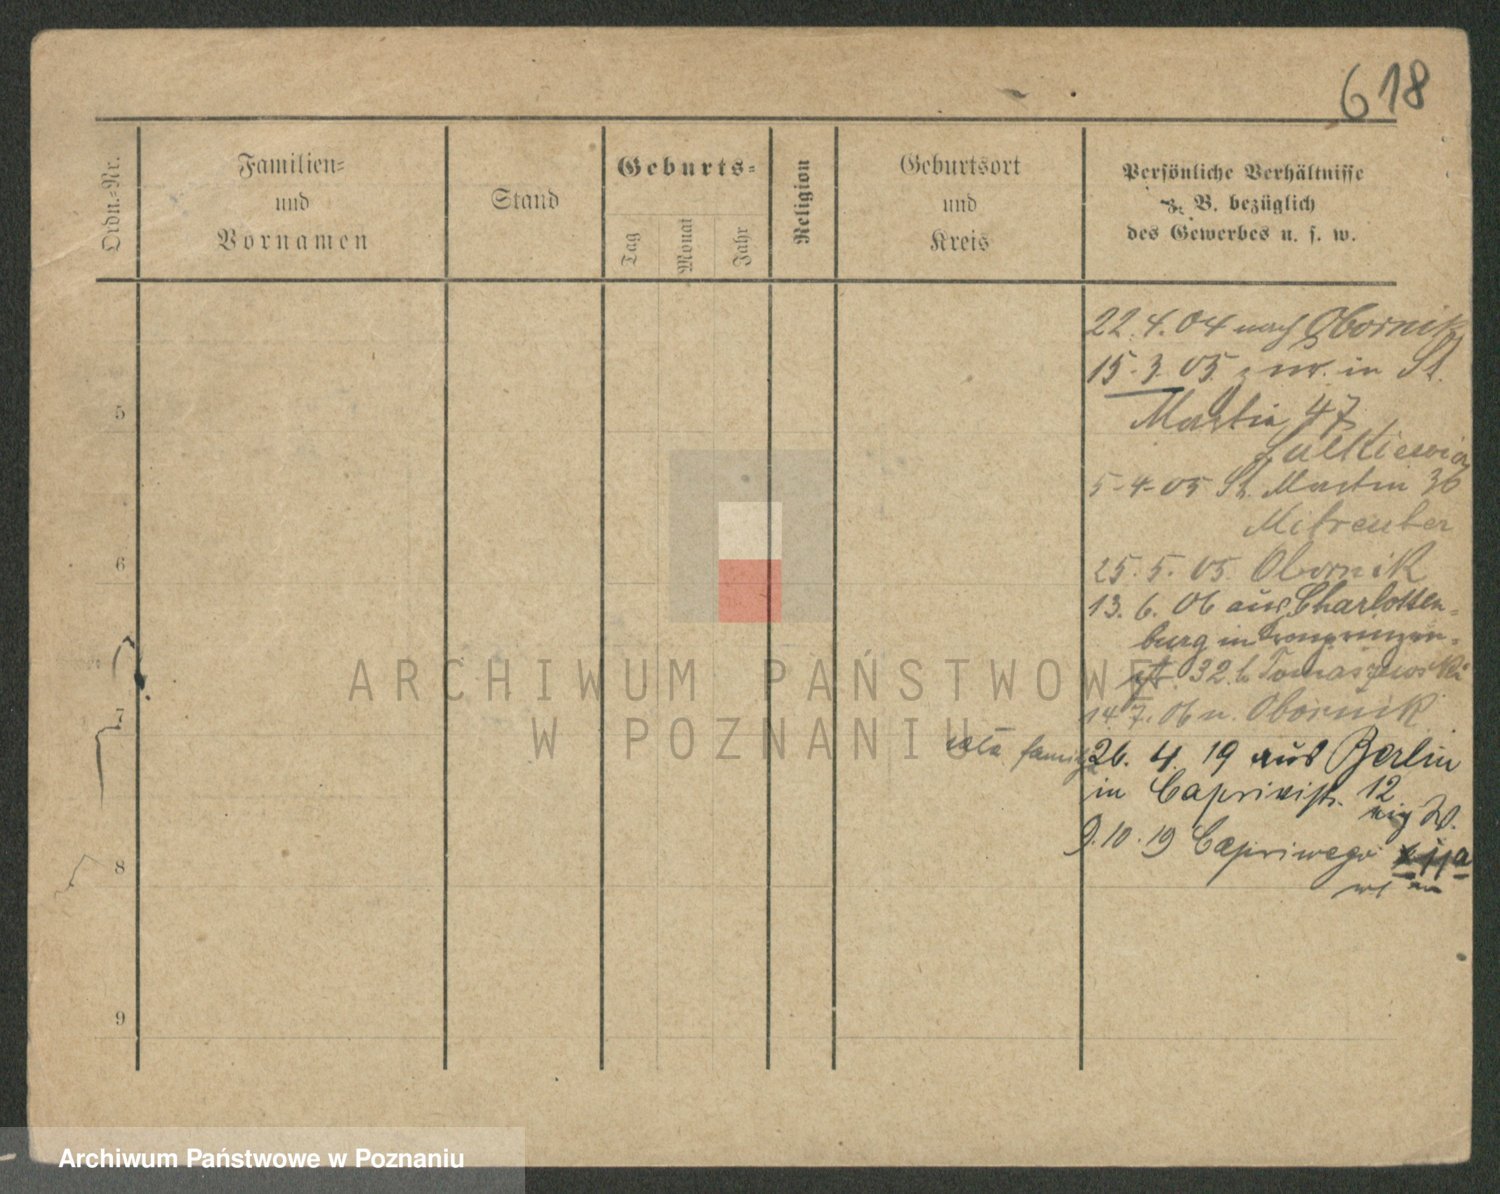 618
Ordn.-Nr.
Familien-
und
Vornamen
Stand
Geburts-
Tag
Monat
Jahr
Religion
Geburtsort
und
Kreis
Persönliche Verhältnisse
z. B. bezüglich
des Gewerbes u. s. w.
22. 4. 04 nach Obornik
15. 3. 05 in St.
Martin 47
5
5-4-05 St. Martin 36
25. 5. 05. Obornik
6
13. 6. 06 aus Charlotten-
burg in Kronprinzen-
str. 32 b. Tomaszewski
14. 7. 06 n. Obornik
7
cała familja 26. 4. 19 aus Berlin
in Caprivistr. 12
9. 10. 19 Capriwego 11a
8
9
ARCHIWUM PAŃSTWOWE
W POZNANIU
Archiwum Państwowe w Poznaniu